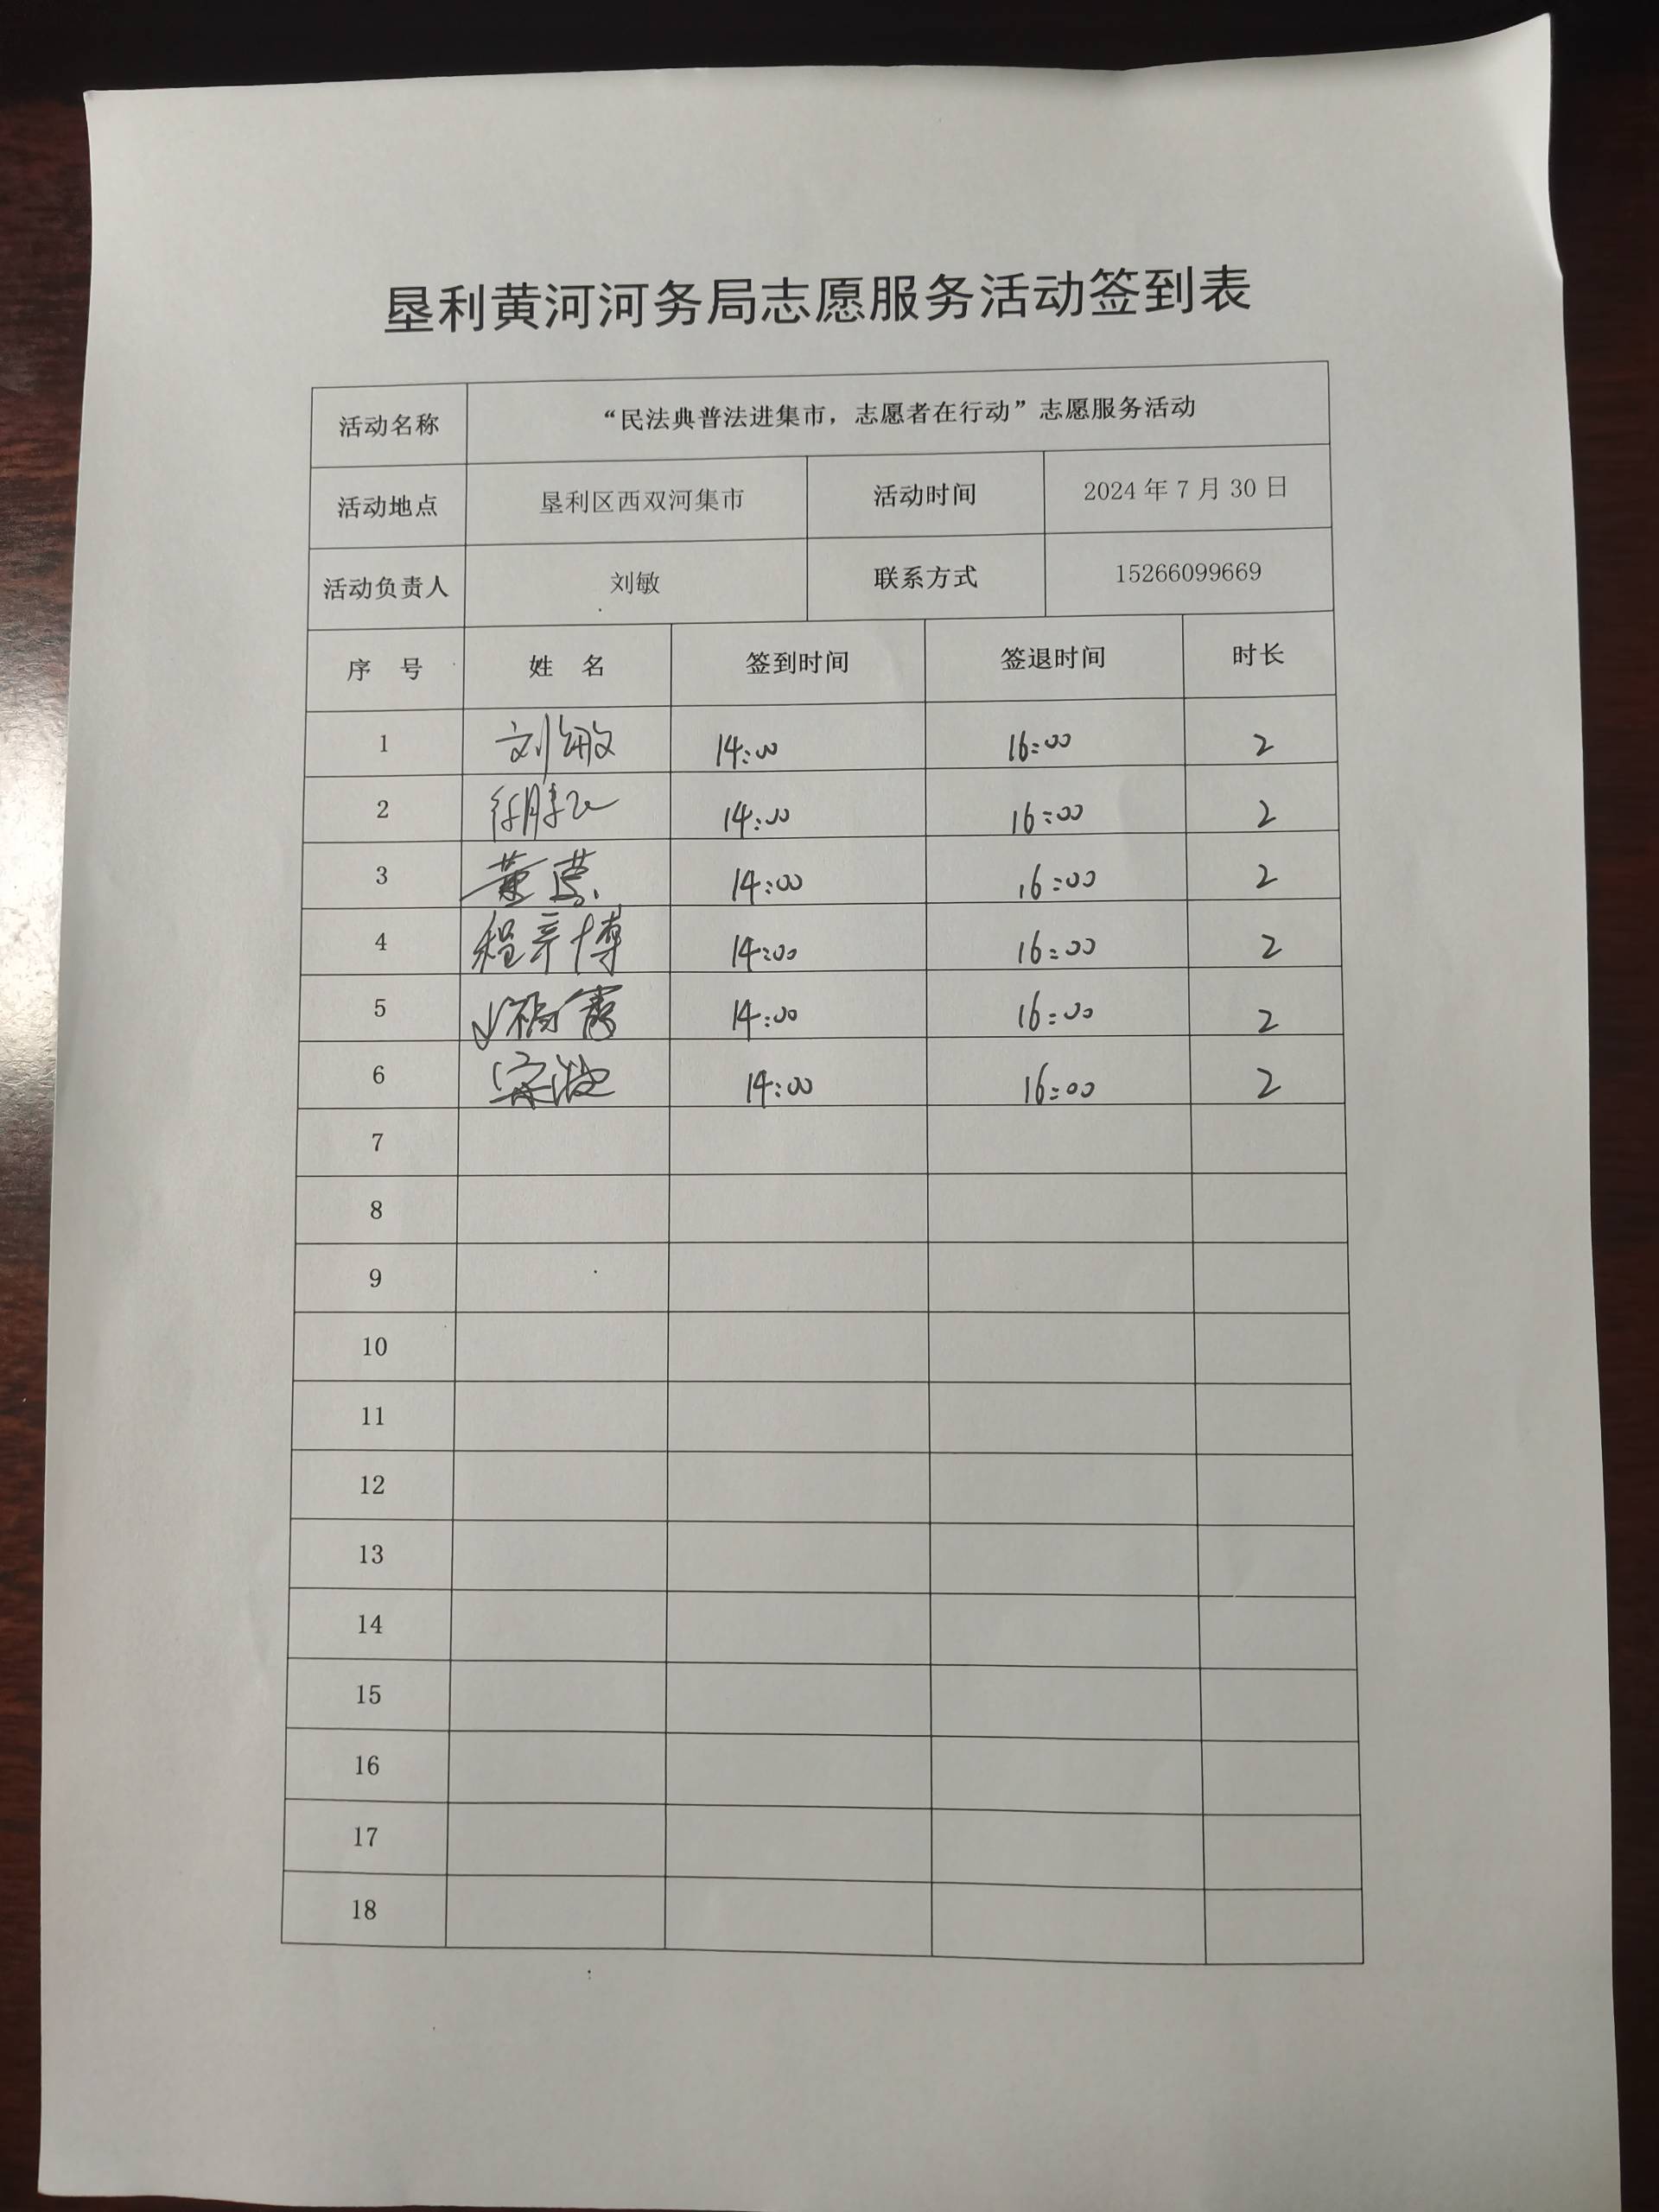 垦利黄河河务局志愿服务活动签到表
活动名称 “民法典普法进集市，志愿者在行动”志愿服务活动
活动地点 垦利区西双河集市 活动时间 2024年7月30日
活动负责人 刘敏 联系方式 15266099669
序 号 姓 名 签到时间 签退时间 时长
1 刘敏 14:00 16:00 2
2 14:00 16:00 2
3 14:00 16:00 2
4 程彦博 14:00 16:00 2
5 14:00 16:00 2
6 14:00 16:00 2
7
8
9
10
11
12
13
14
15
16
17
18